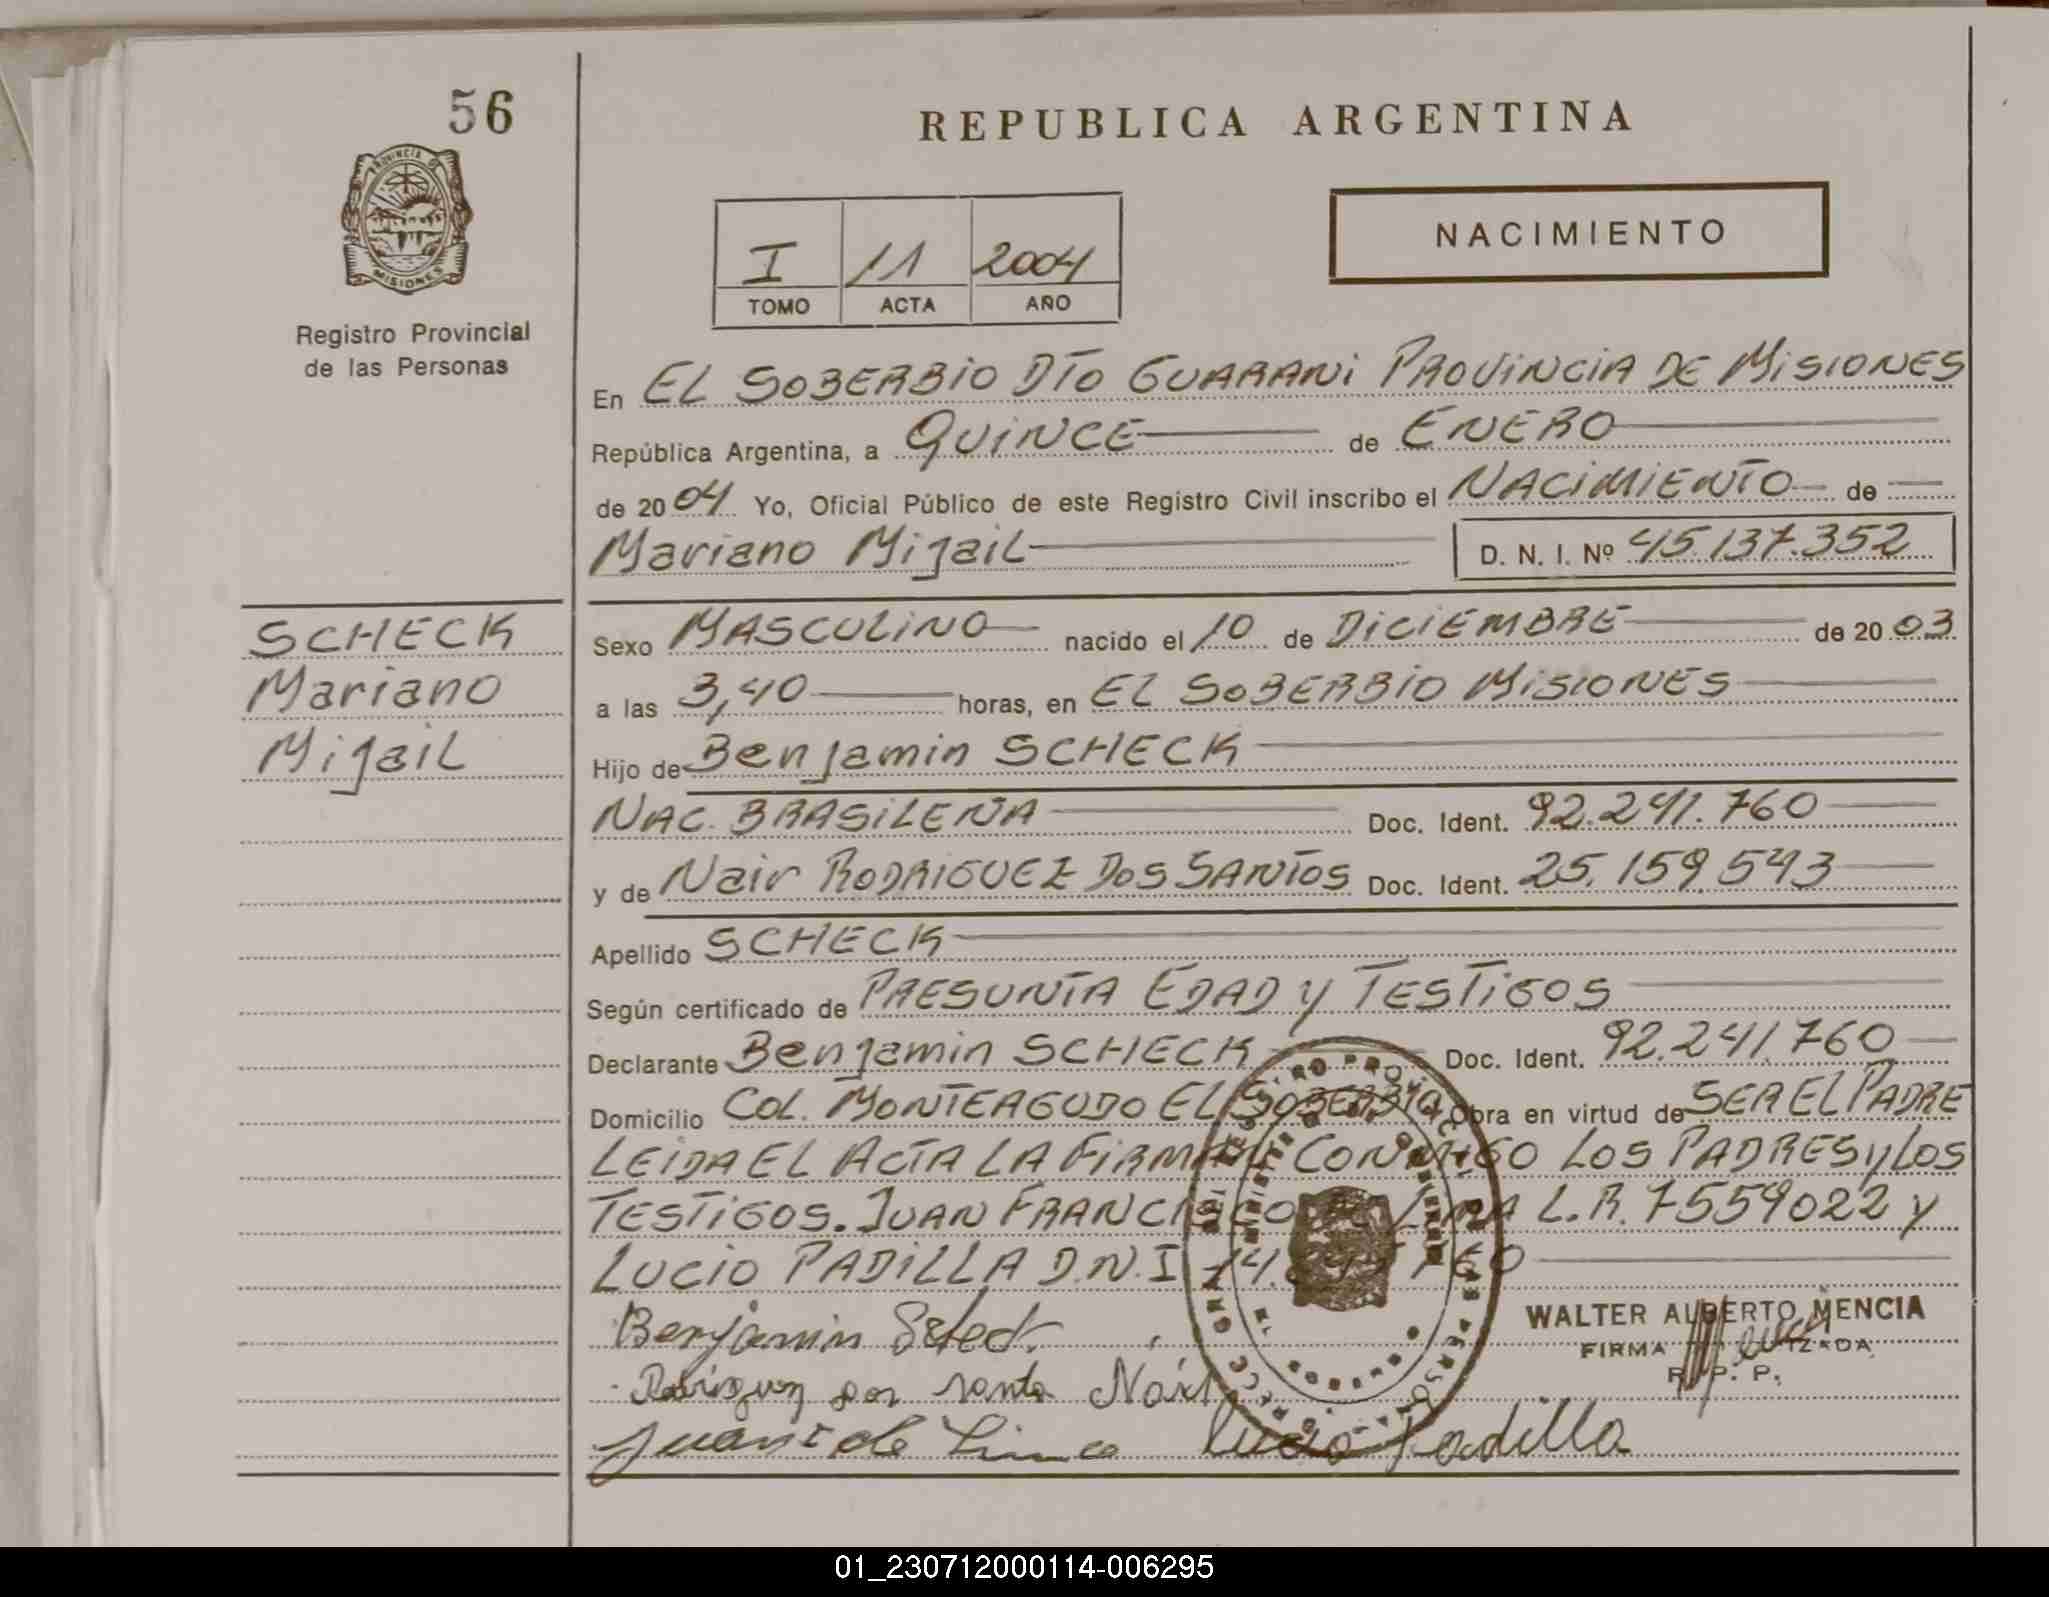 56
REPUBLICA ARGENTINA
PROVINCIA DE
MISIONES
Registro Provincial
de las Personas
I 11 2004
TOMO ACTA AÑO
NACIMIENTO
En EL SOBERBIO DTO GUARANI PROVINCIA DE MISIONES
República Argentina, a QUINCE de ENERO
de 20 04 Yo, Oficial Público de este Registro Civil inscribo el NACIMIENTO de
Mariano Mijail D. N. I. Nº 45.137.352
SCHECK
Mariano
Mijail
Sexo MASCULINO nacido el 10 de DICIEMBRE de 20 03
a las 3,40 horas, en EL SOBERBIO MISIONES
Hijo de Benjamin SCHECK
NAC. BRASILEÑA Doc. Ident. 92.241.760
y de Nair RODRIGUEZ DOS SANTOS Doc. Ident. 25.159.543
Apellido SCHECK
Según certificado de PRESUNTA EDAD y TESTIGOS
Declarante Benjamin SCHECK Doc. Ident. 92.241.760
Domicilio COL. MONTEAGUDO EL SOBERBIO Obra en virtud de SER EL PADRE
LEIDA EL ACTA LA FIRMAN CONMIGO LOS PADRES y LOS
TESTIGOS. JUAN FRANCISCO L.R. 7559022 y
LUCIO PADILLA D.N.I 14. 60
WALTER ALBERTO MENCIA
FIRMA
R. P. P.
Benjamin
Juan de Lima Lucio Padilla
01_230712000114-006295